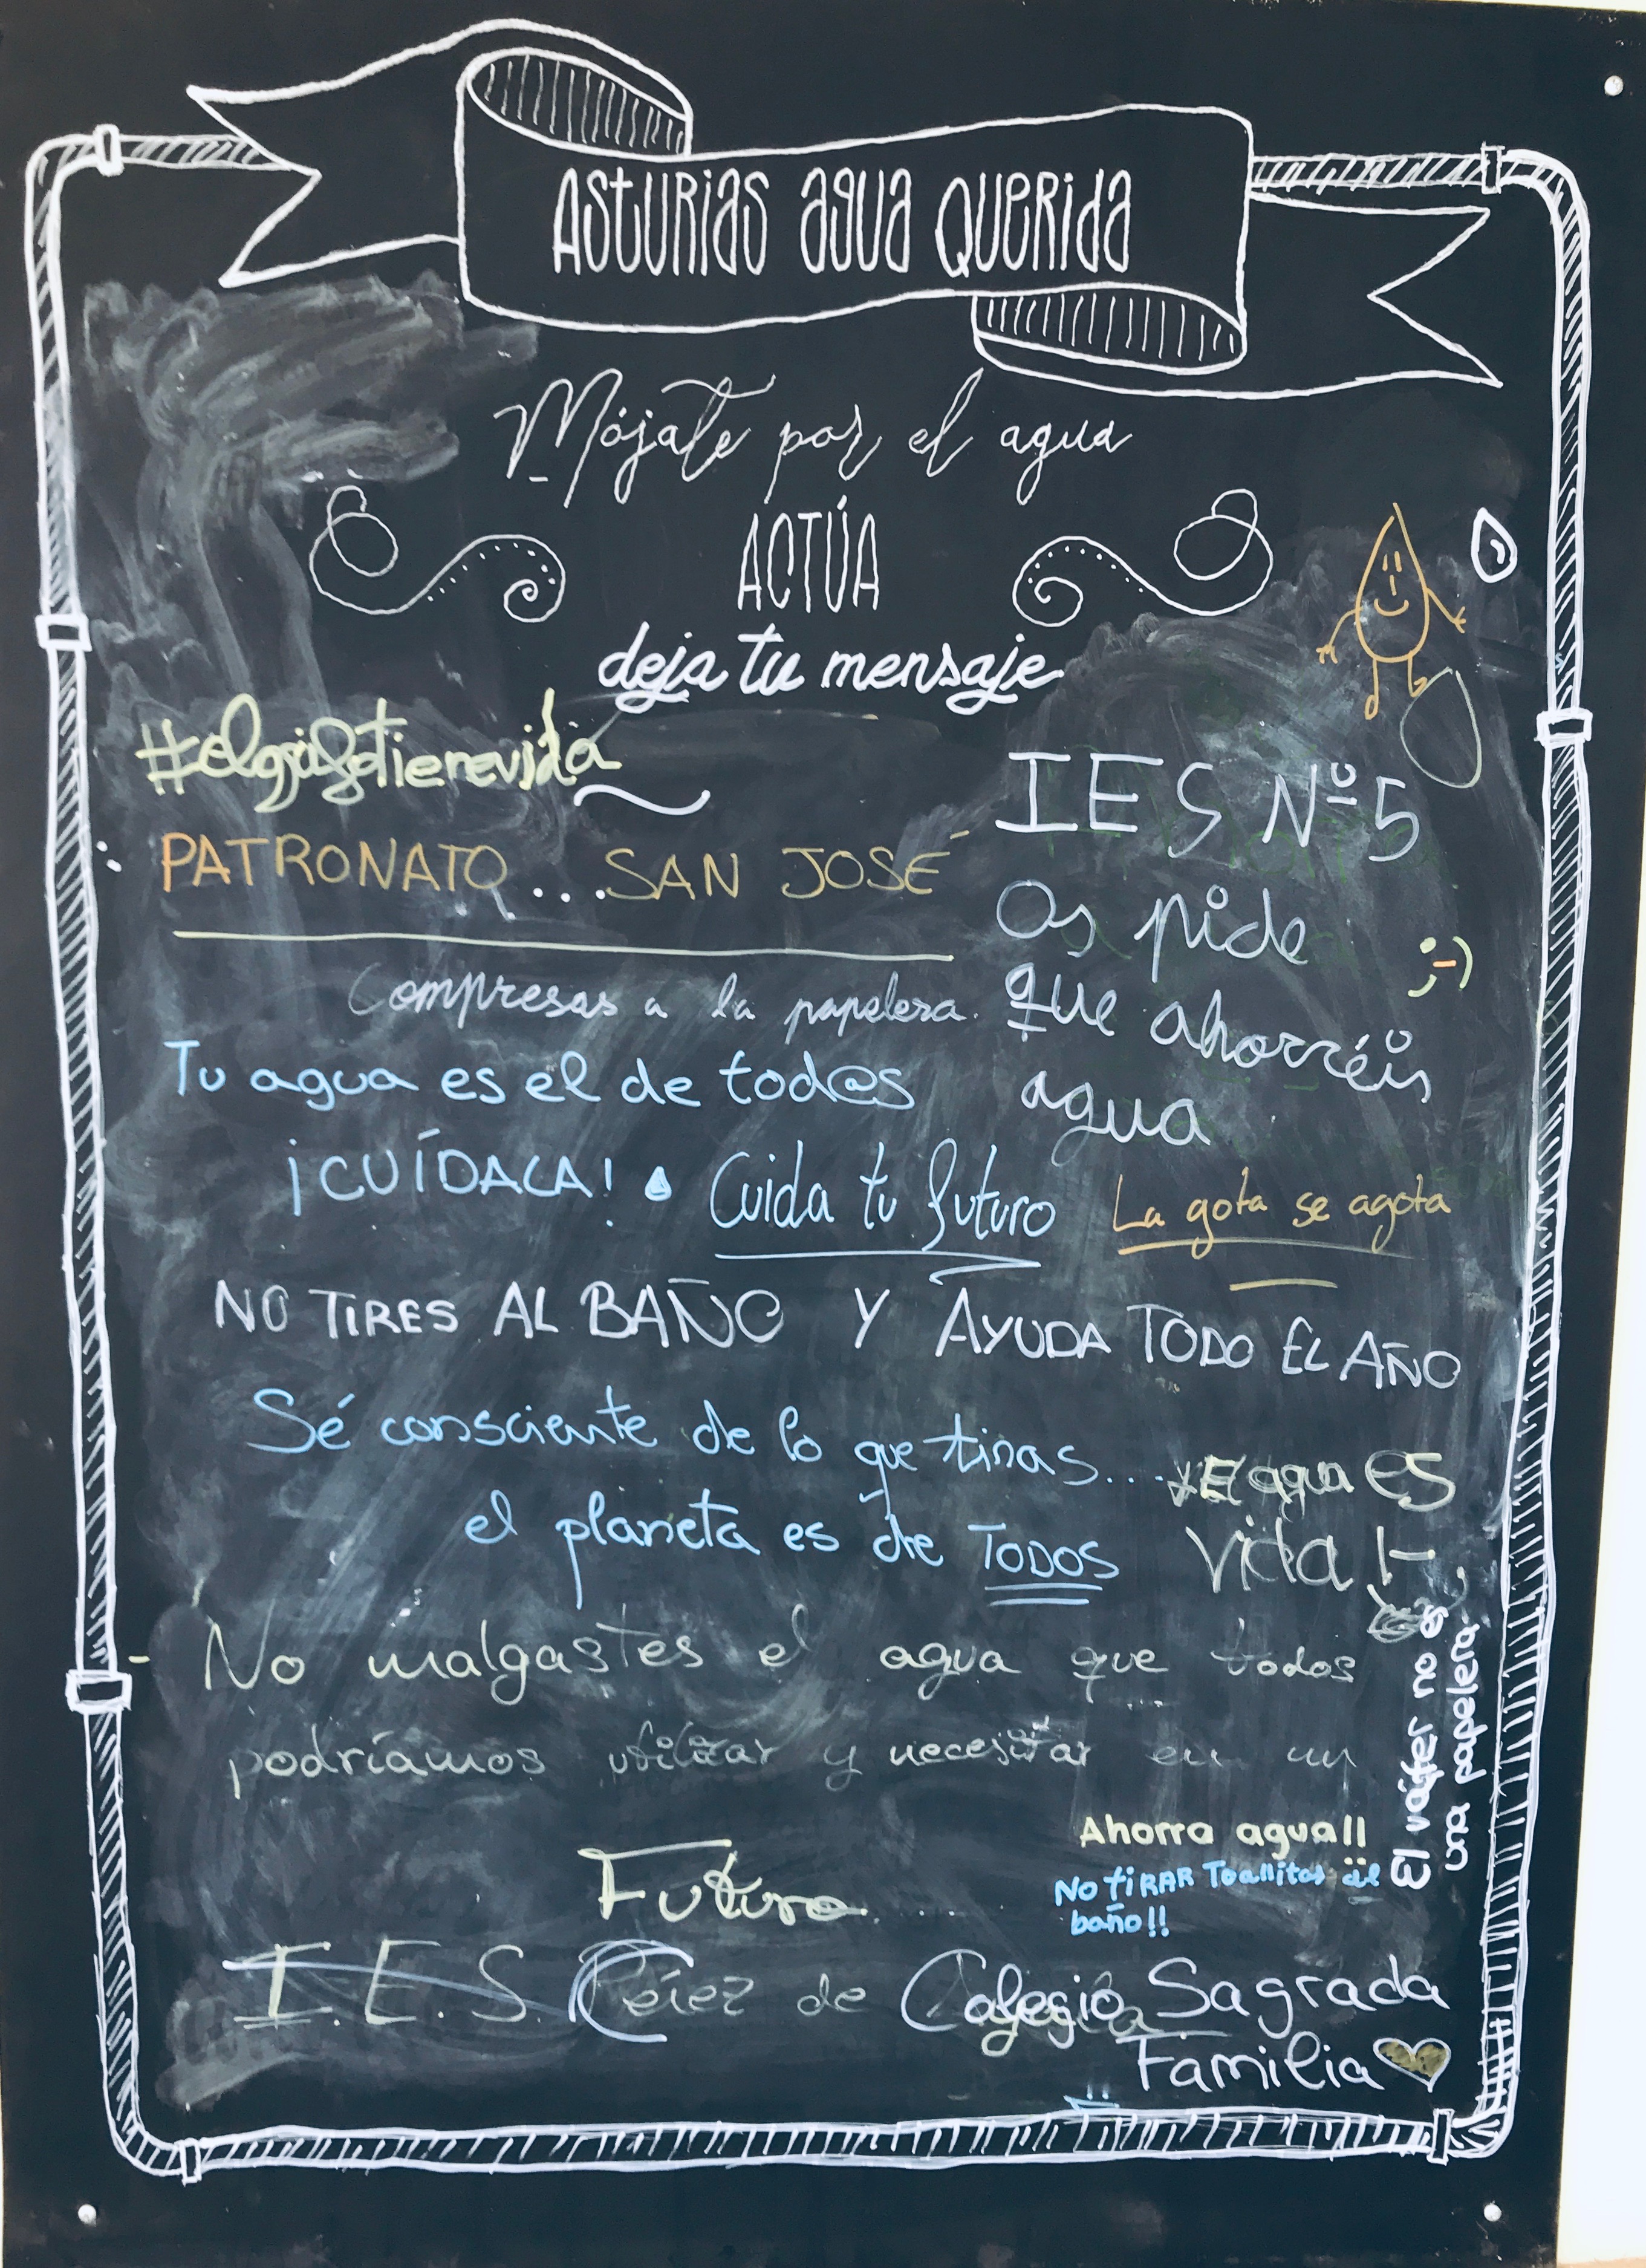 Asturias agua querida
Mójate por el agua
ACTÚA
deja tu mensaje
#elgrifotienevida
PATRONATO...SAN JOSÉ
IES Nº 5
Os pide
que ahorréis
agua
;-)
Compresas a la papelera.
Tu agua es el de tod@s
¡CUÍDALA!
Cuida tu futuro
La gota se agota
NO TIRES AL BAÑO Y AYUDA TODO EL AÑO
Sé consciente de lo que tiras...
el planeta es de TODOS
El agua es
vida!
No malgastes el agua que todos
podríamos utilizar y necesitar en un
Futuro
El váter no es
una papelera.
Ahorra agua!!
No tiRAR Toallitas al
baño!!
I.E.S. Pérez de
Colegio Sagrada
Familia